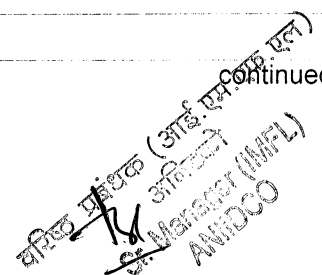 continued
वरिष्ठ प्रबंधक (आई. एम. एफ. एल)
अनिडको
Sr. Manager (IMFL)
ANIIDCO